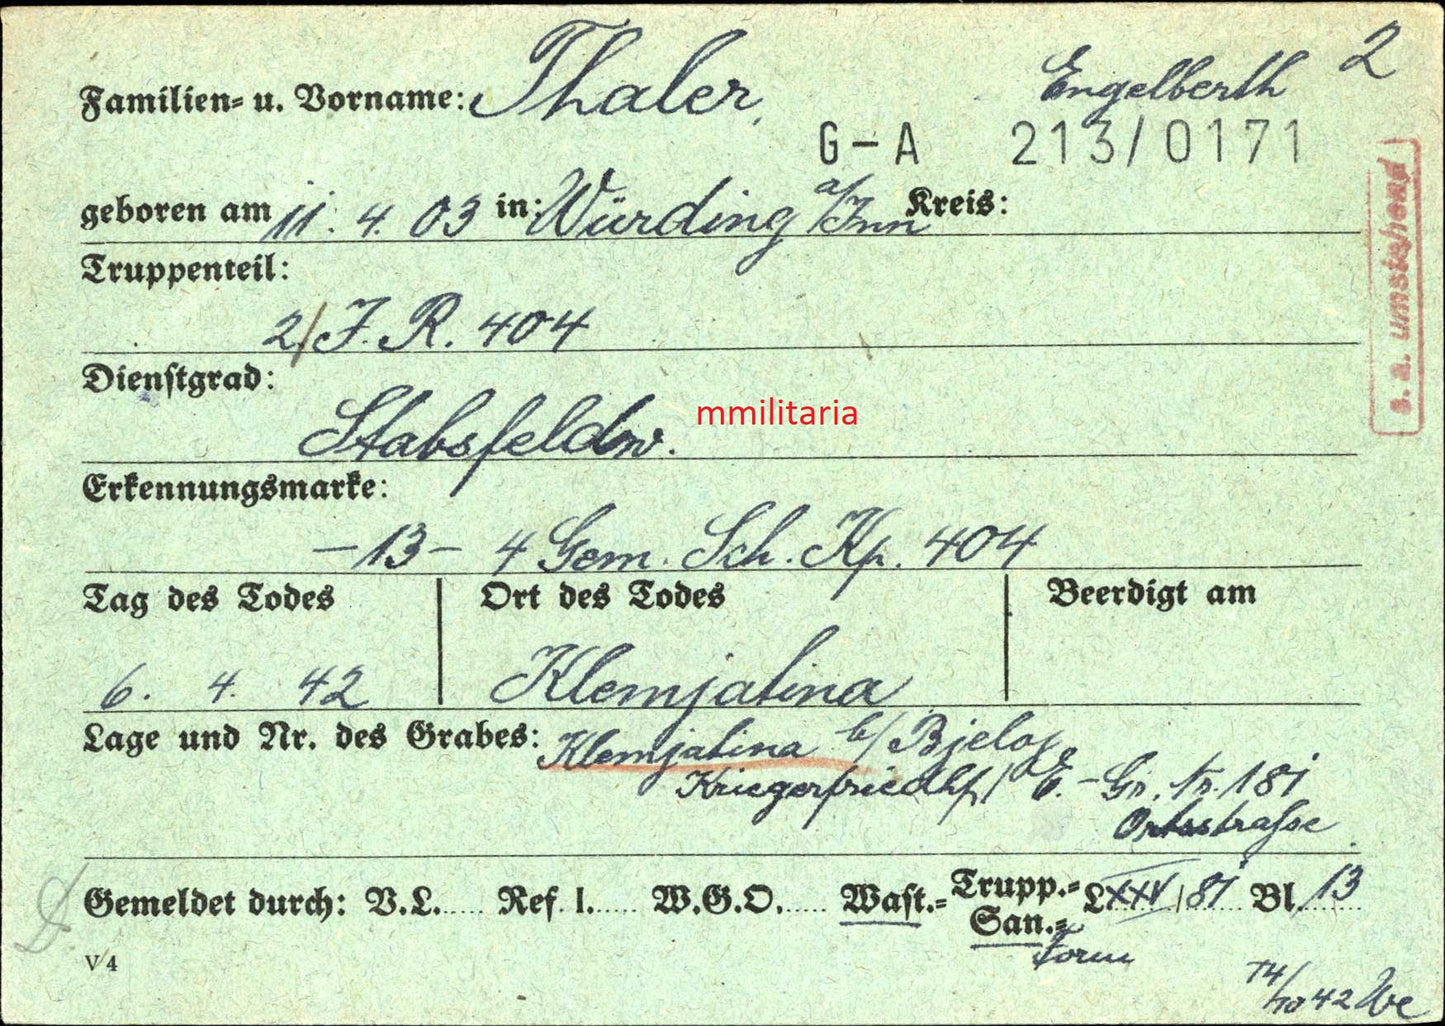 2
Familien- u. Vorname: Thaler, Engelberth
G-A 213/0171
geboren am 11. 4. 03 in: Würding a/Inn Kreis:
s. a. umstehend
Truppenteil:
2/J. R. 404
Dienstgrad:
Stabsfeldw.
mmilitaria
Erkennungsmarke:
-13- 4 Gem. Sch. Kp. 404
Tag des Todes Ort des Todes Beerdigt am
6. 4. 42 Klemjatina
Lage und Nr. des Grabes: Klemjatina b/Bjeloj
Kriegerfriedhf/ E.-Gr. Nr. 181
Ortsstraße
Gemeldet durch: V.L. Ref. I. W.G.O. Wast.- Trupp.- L XXV/81 Bl. 13
San.-
Form
V/4
42